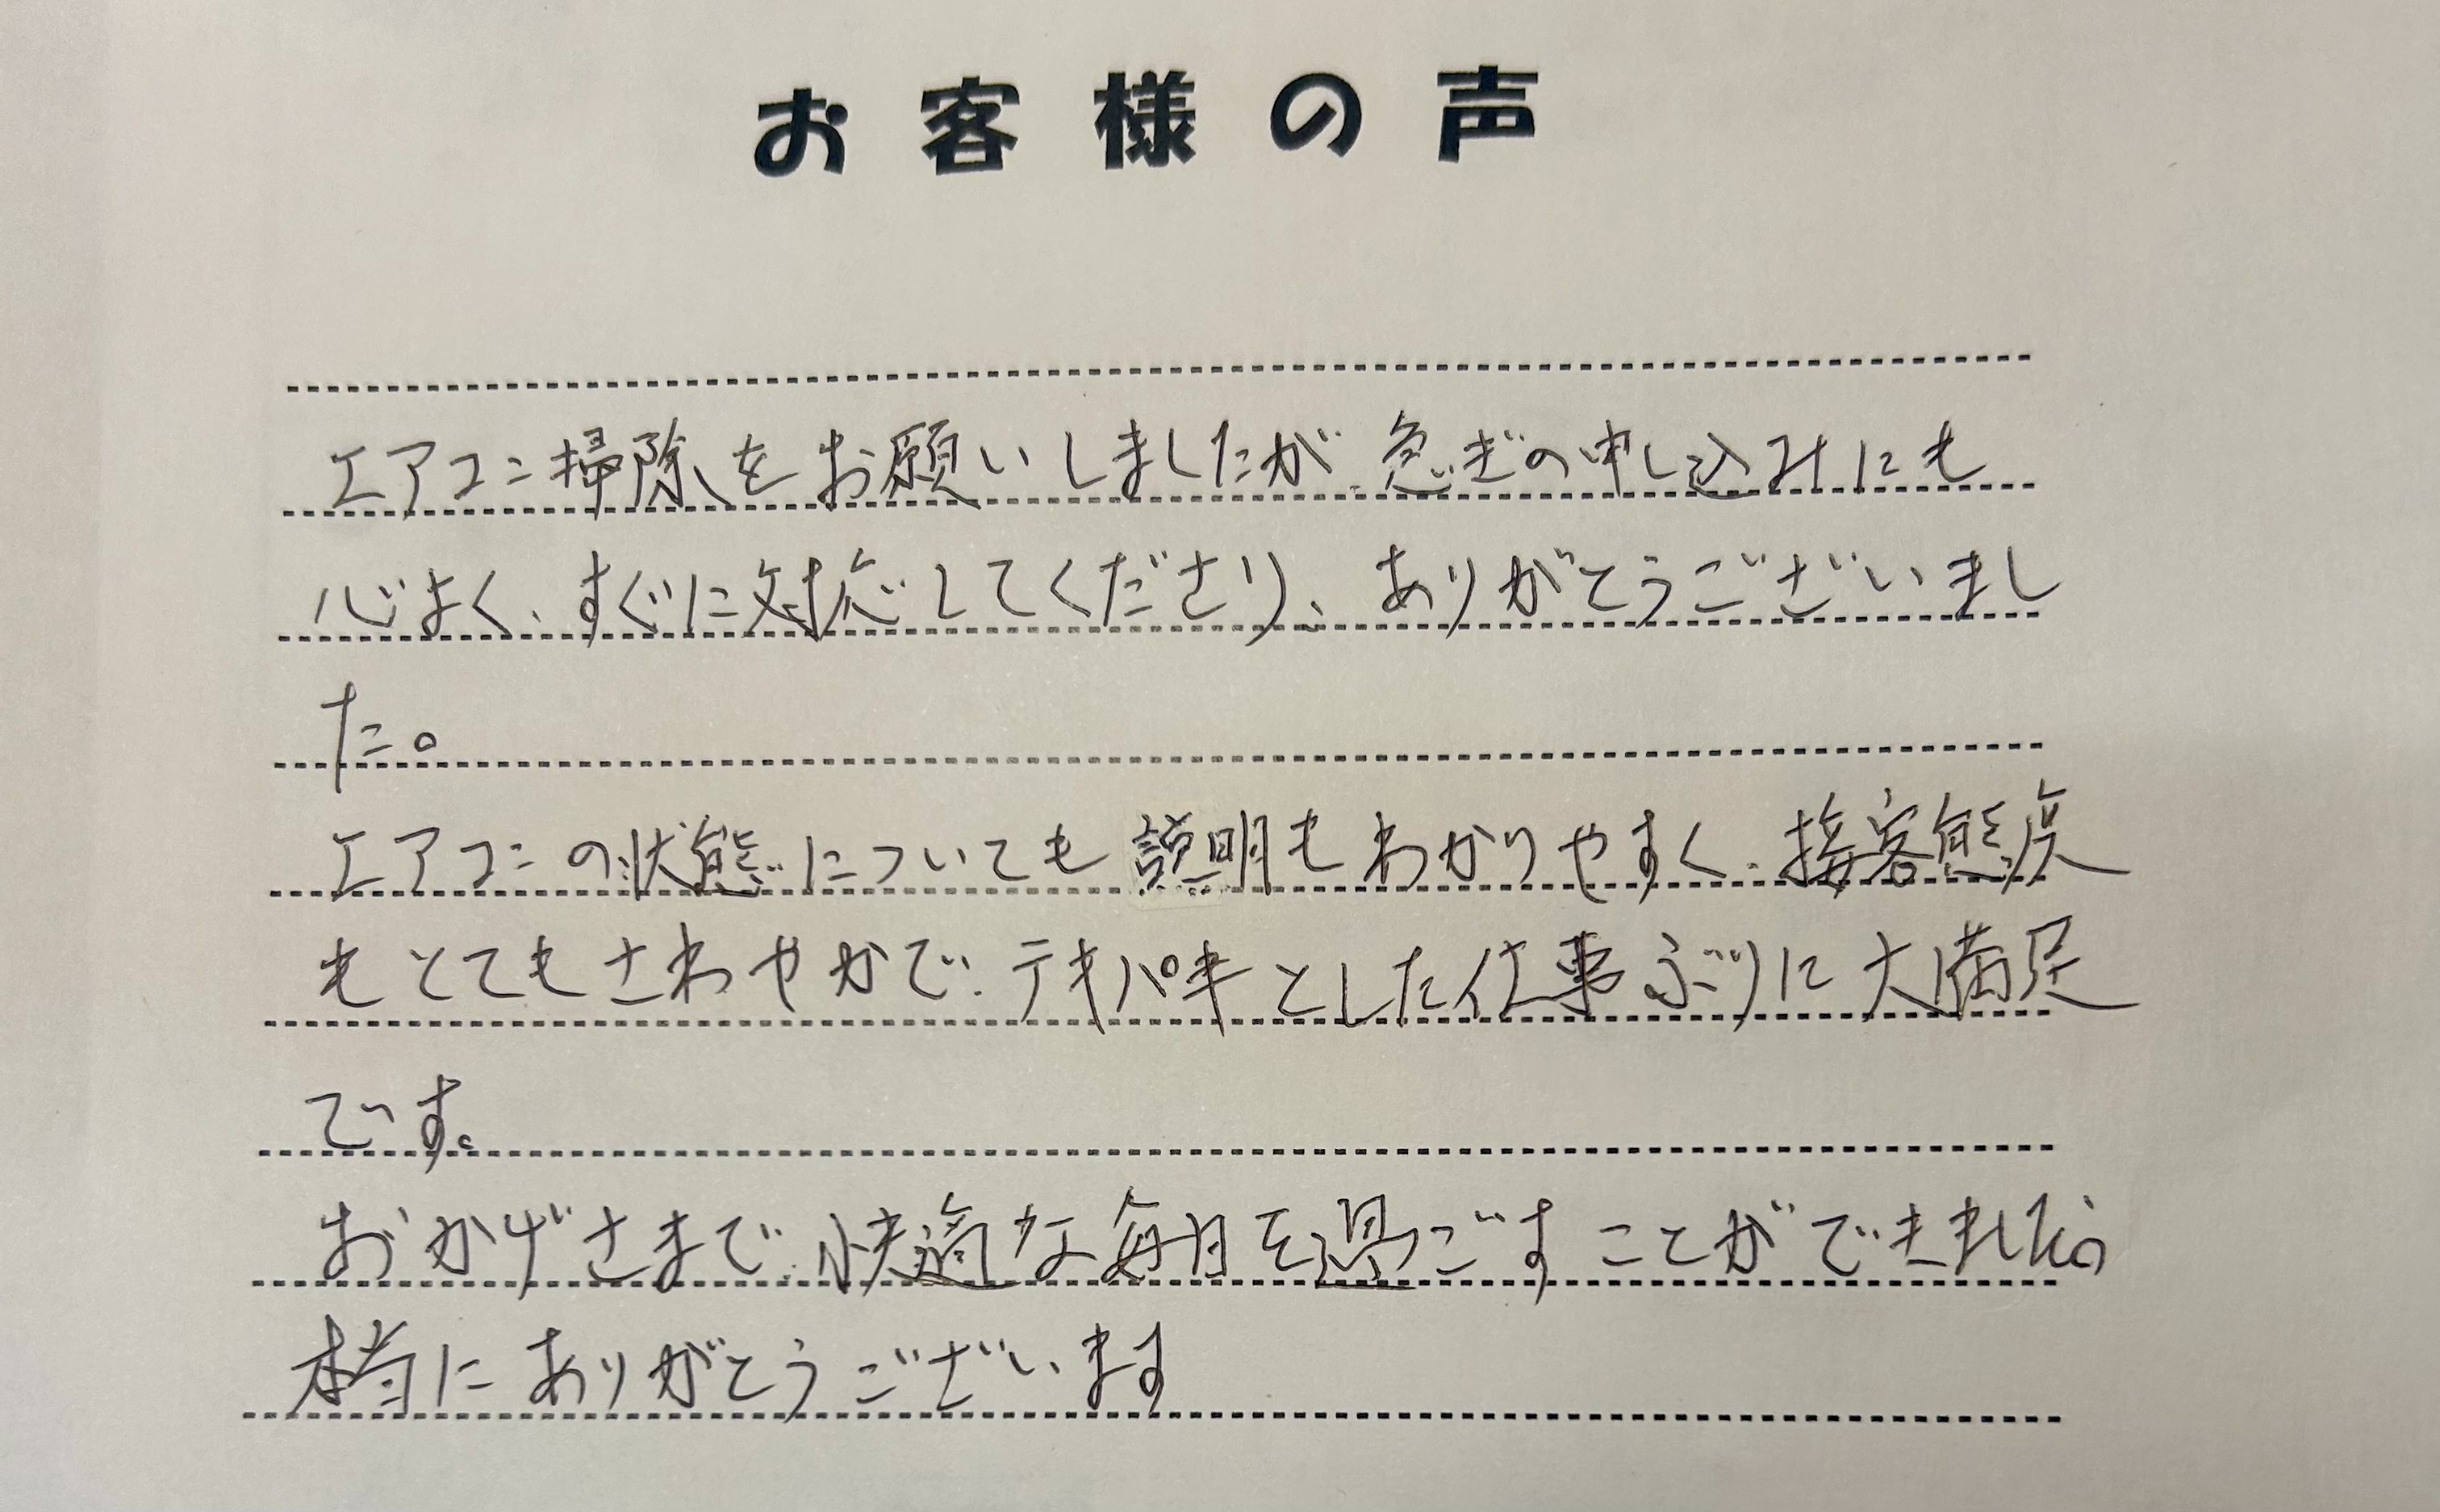 お客様の声
エアコン掃除をお願いしましたが、急ぎの申し込みにも
心よく、すぐに対応してくださり、ありがとうございまし
た。
エアコンの状態についても説明もわかりやすく、接客態度
もとてもさわやかで、テキパキとした仕事ぶりに大満足
です。
おかげさまで、快適な毎日を過ごすことができました。
本当にありがとうございます